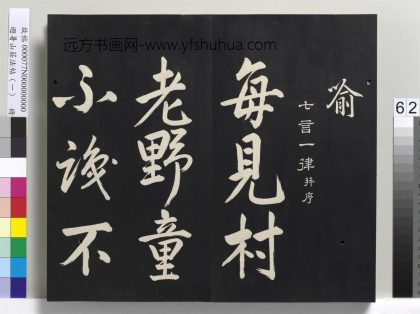 喻
七言一律并序
每見村
老野童
不識不
远方书画网-www.yfshuhua.com
故帖 000077N000000000
避暑山莊法帖（一） 冊
62